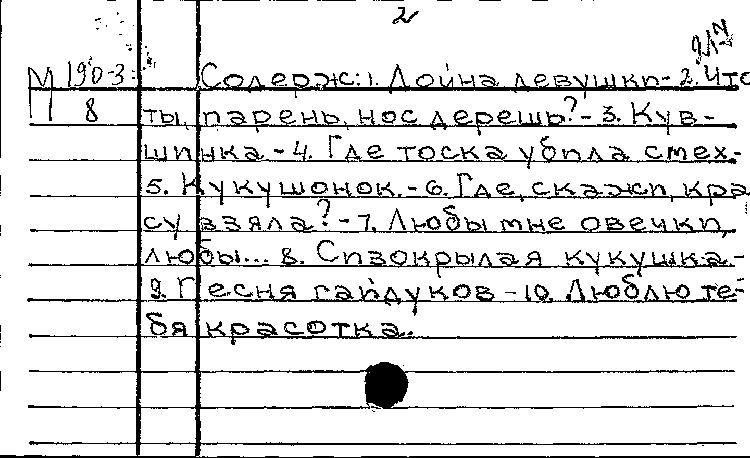 2
М 190-3 Содерж: 1. Дойна девушки - 2. Что
8 ты, парень, нос дерешь? - 3. Кув-
шинка - 4. Где тоска убила смех. -
5. Кукушонок. - 6. Где, скажи, кра
су взяла? - 7. Любы мне овечки,
любы... 8. Сизокрылая кукушка -
9. Песня гайдуков - 10. Люблю те-
бя красотка.